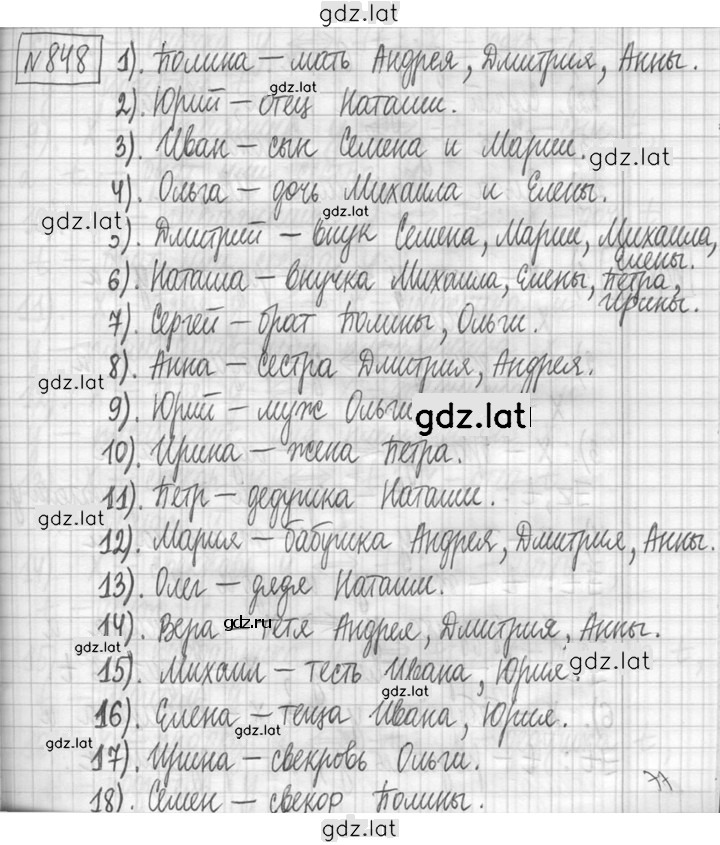 gdz.lat
№848 1). Полина — мать Андрея, Дмитрия, Анны.
gdz.lat
2). Юрий — отец Наташи.
3). Иван — сын Семена и Марии.
gdz.lat
4). Ольга — дочь Михаила и Елены.
gdz.lat
gdz.lat
5). Дмитрий — внук Семена, Марии, Михаила,
Елены.
6). Наташа — внучка Михаила, Елены, Петра,
Ирины.
7). Сергей — брат Полины, Ольги.
gdz.lat
8). Анна — сестра Дмитрия, Андрея.
gdz.lat
9). Юрий — муж Ольги
gdz.lat
10). Ирина — жена Петра.
11). Петр — дедушка Наташи.
gdz.lat
12). Мария — бабушка Андрея, Дмитрия, Анны.
13). Олег — дядя Наташи.
gdz.ru
14). Вера — тётя Андрея, Дмитрия, Анны.
gdz.lat
15). Михаил — тесть Ивана, Юрия.
gdz.lat
gdz.lat
16). Елена — теща Ивана, Юрия.
gdz.lat
gdz.lat
17). Ирина — свекровь Ольги.
18). Семен — свекор Полины.
gdz.lat